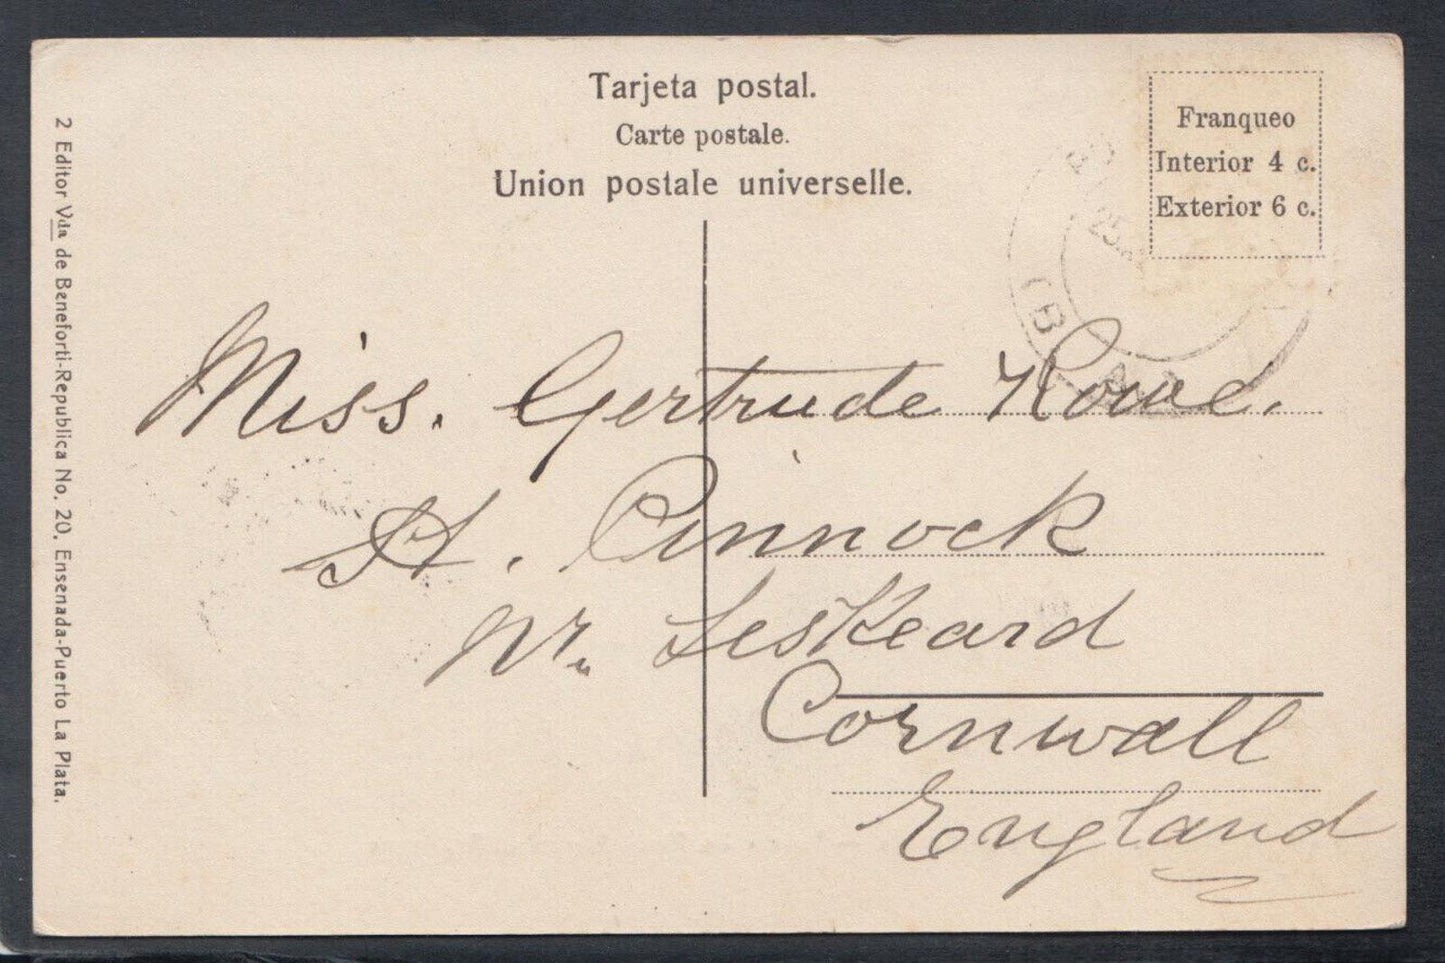 Tarjeta postal.
Carte postale.
Union postale universelle.
Franqueo
Interior 4 c.
Exterior 6 c.
Miss. Gertrude Rowe.
St. Pinnock
Nr. Leskeard
Cornwall
England
2 Editor Vda de Beneforti-Republica No. 20, Ensenada-Puerto La Plata.